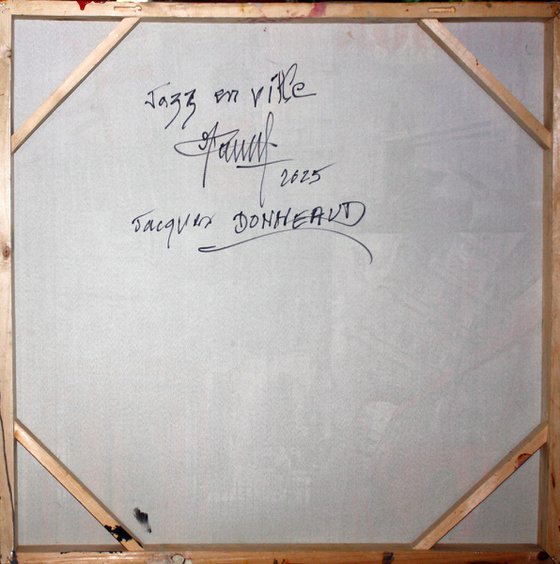 Jazz en ville
2025
Jacques DONNEAUD